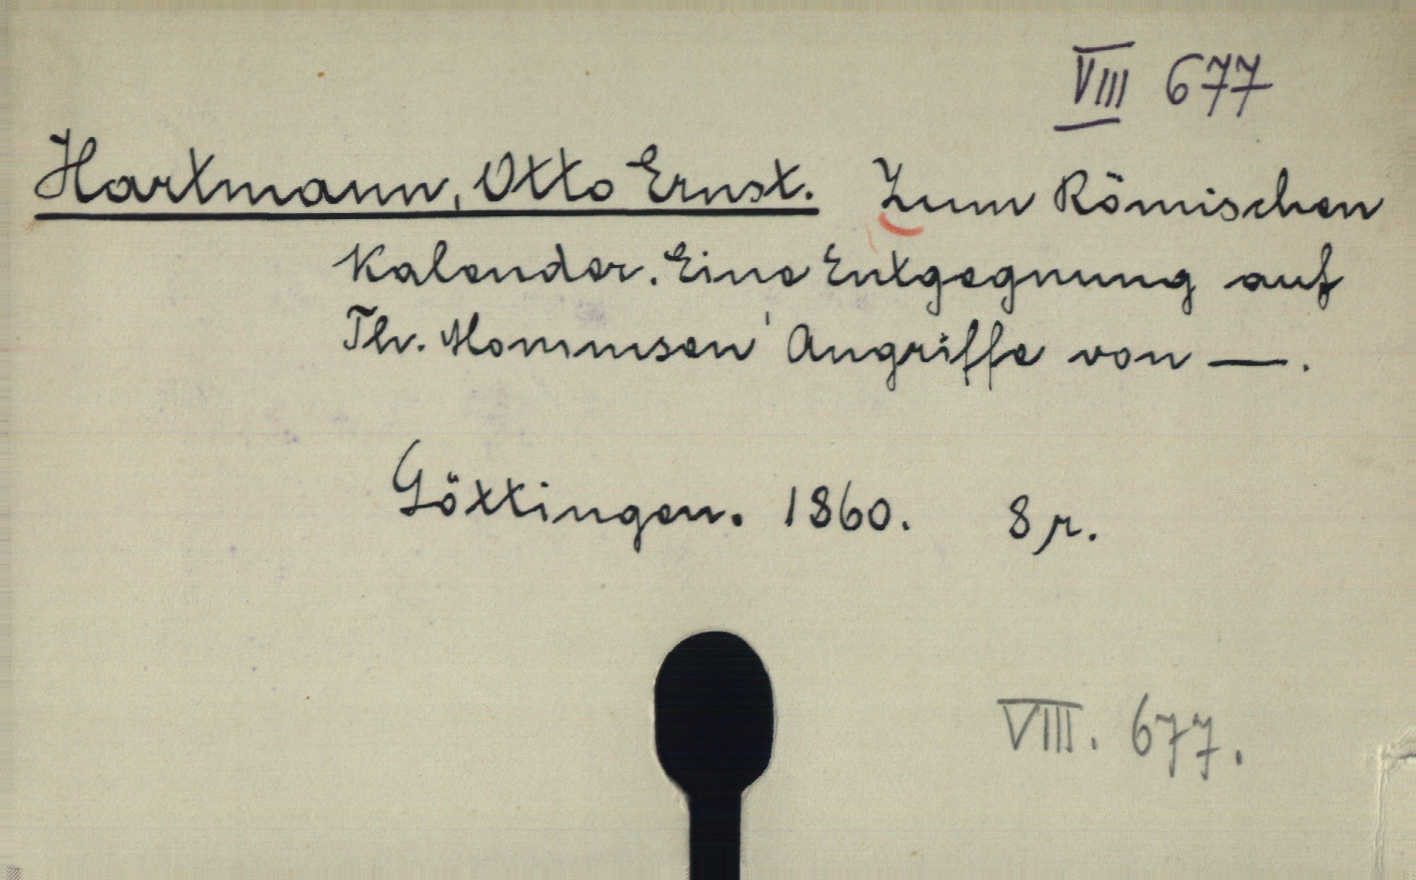 VIII 677
Hartmann, Otto Ernst. Zum Römischen
Kalender. Eine Entgegnung auf
Th. Mommsen' Angriffe von —.
Göttingen. 1860. 8 r.
VIII. 677.